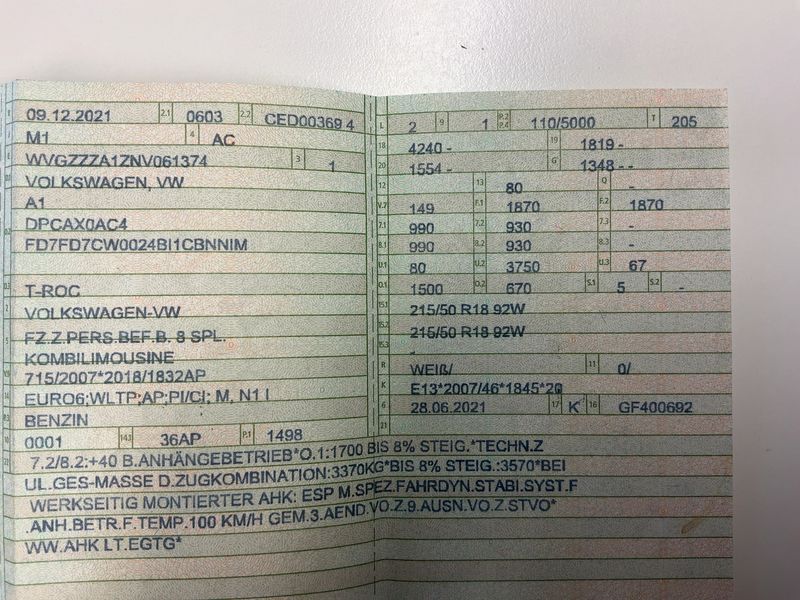 09.12.2021 2.1 0603 2.2 CED00369 4
M1 4 AC
WVGZZZA1ZNV061374 3 1
VOLKSWAGEN, VW
A1
DPCAX0AC4
FD7FD7CW0024BI1CBNNIM
T-ROC
VOLKSWAGEN-VW
FZ.Z.PERS.BEF.B. 8 SPL.
KOMBILIMOUSINE
715/2007*2018/1832AP
EURO6;WLTP;AP;PI/CI; M, N1 I
BENZIN
0001 14.1 36AP P.1 1498
L 2 9 1 P.2 P.4 110/5000 T 205
18 4240 - 19 1819 -
20 1554 - G 1348 - -
12 - 13 80 Q -
V.7 149 F.1 1870 F.2 1870
7.1 990 7.2 930 7.3 -
8.1 990 8.2 930 8.3 -
U.1 80 U.2 3750 U.3 67
O.1 1500 O.2 670 S.1 5 S.2 -
15.1 215/50 R18 92W
15.2 215/50 R18 92W
15.3 -
R WEIß/ 11 0/
K E13*2007/46*1845*20
6 28.06.2021 17 K 16 GF400692
21
7.2/8.2:+40 B.ANHÄNGEBETRIEB*O.1:1700 BIS 8% STEIG.*TECHN.Z
UL.GES-MASSE D.ZUGKOMBINATION:3370KG*BIS 8% STEIG.:3570*BEI
WERKSEITIG MONTIERTER AHK: ESP M.SPEZ.FAHRDYN.STABI.SYST.F
.ANH.BETR.F.TEMP.100 KM/H GEM.3.AEND.VO.Z.9.AUSN.VO.Z.STVO*
WW.AHK LT.EGTG*